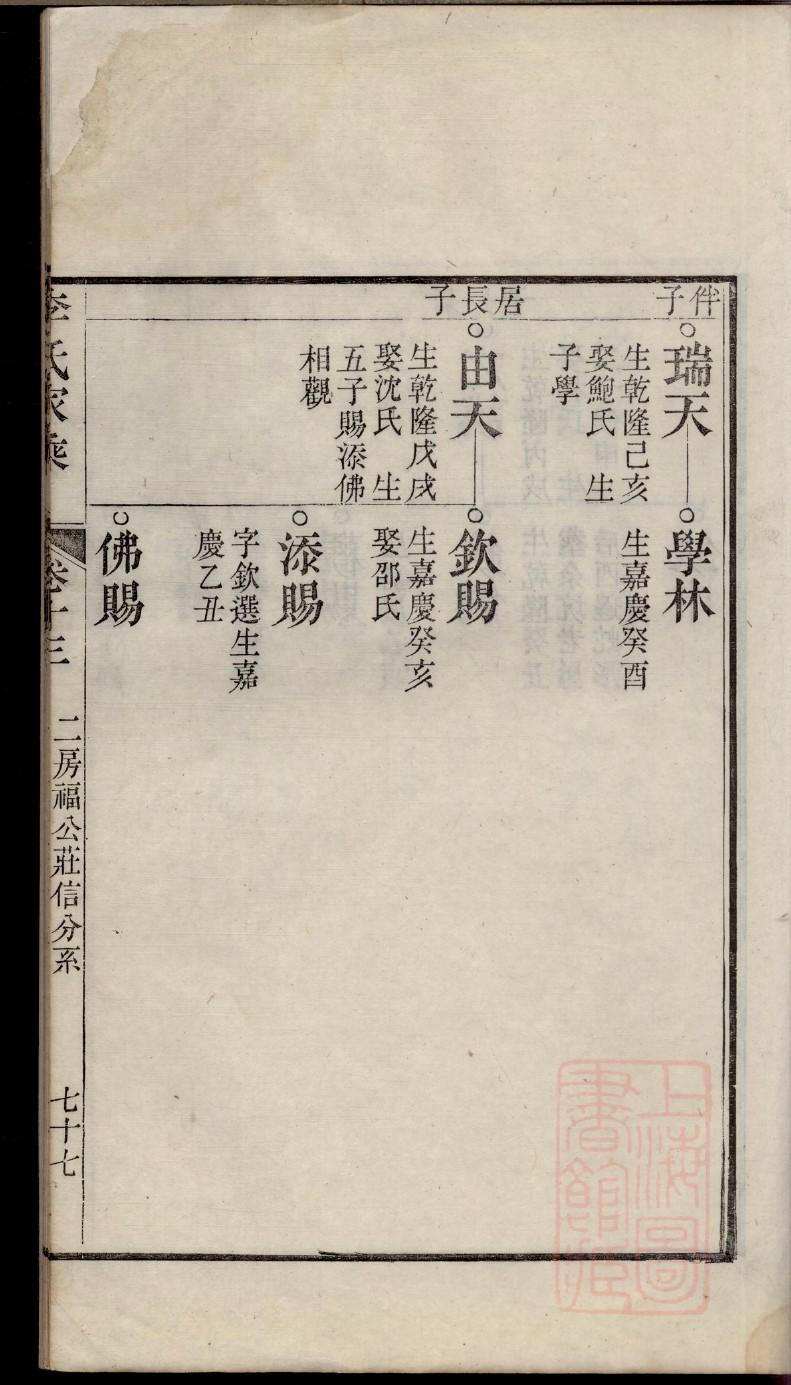 伴子
瑞天
生乾隆己亥
娶鮑氏 生
子學
學林
生嘉慶癸酉
居長子
由天
生乾隆戊戌
娶沈氏 生
五子賜添佛
相觀
欽賜
生嘉慶癸亥
娶邵氏
添賜
字欽選生嘉
慶乙丑
佛賜
李氏家乘
卷十三
二房福公莊信分系
七十七
上海圖
書館藏